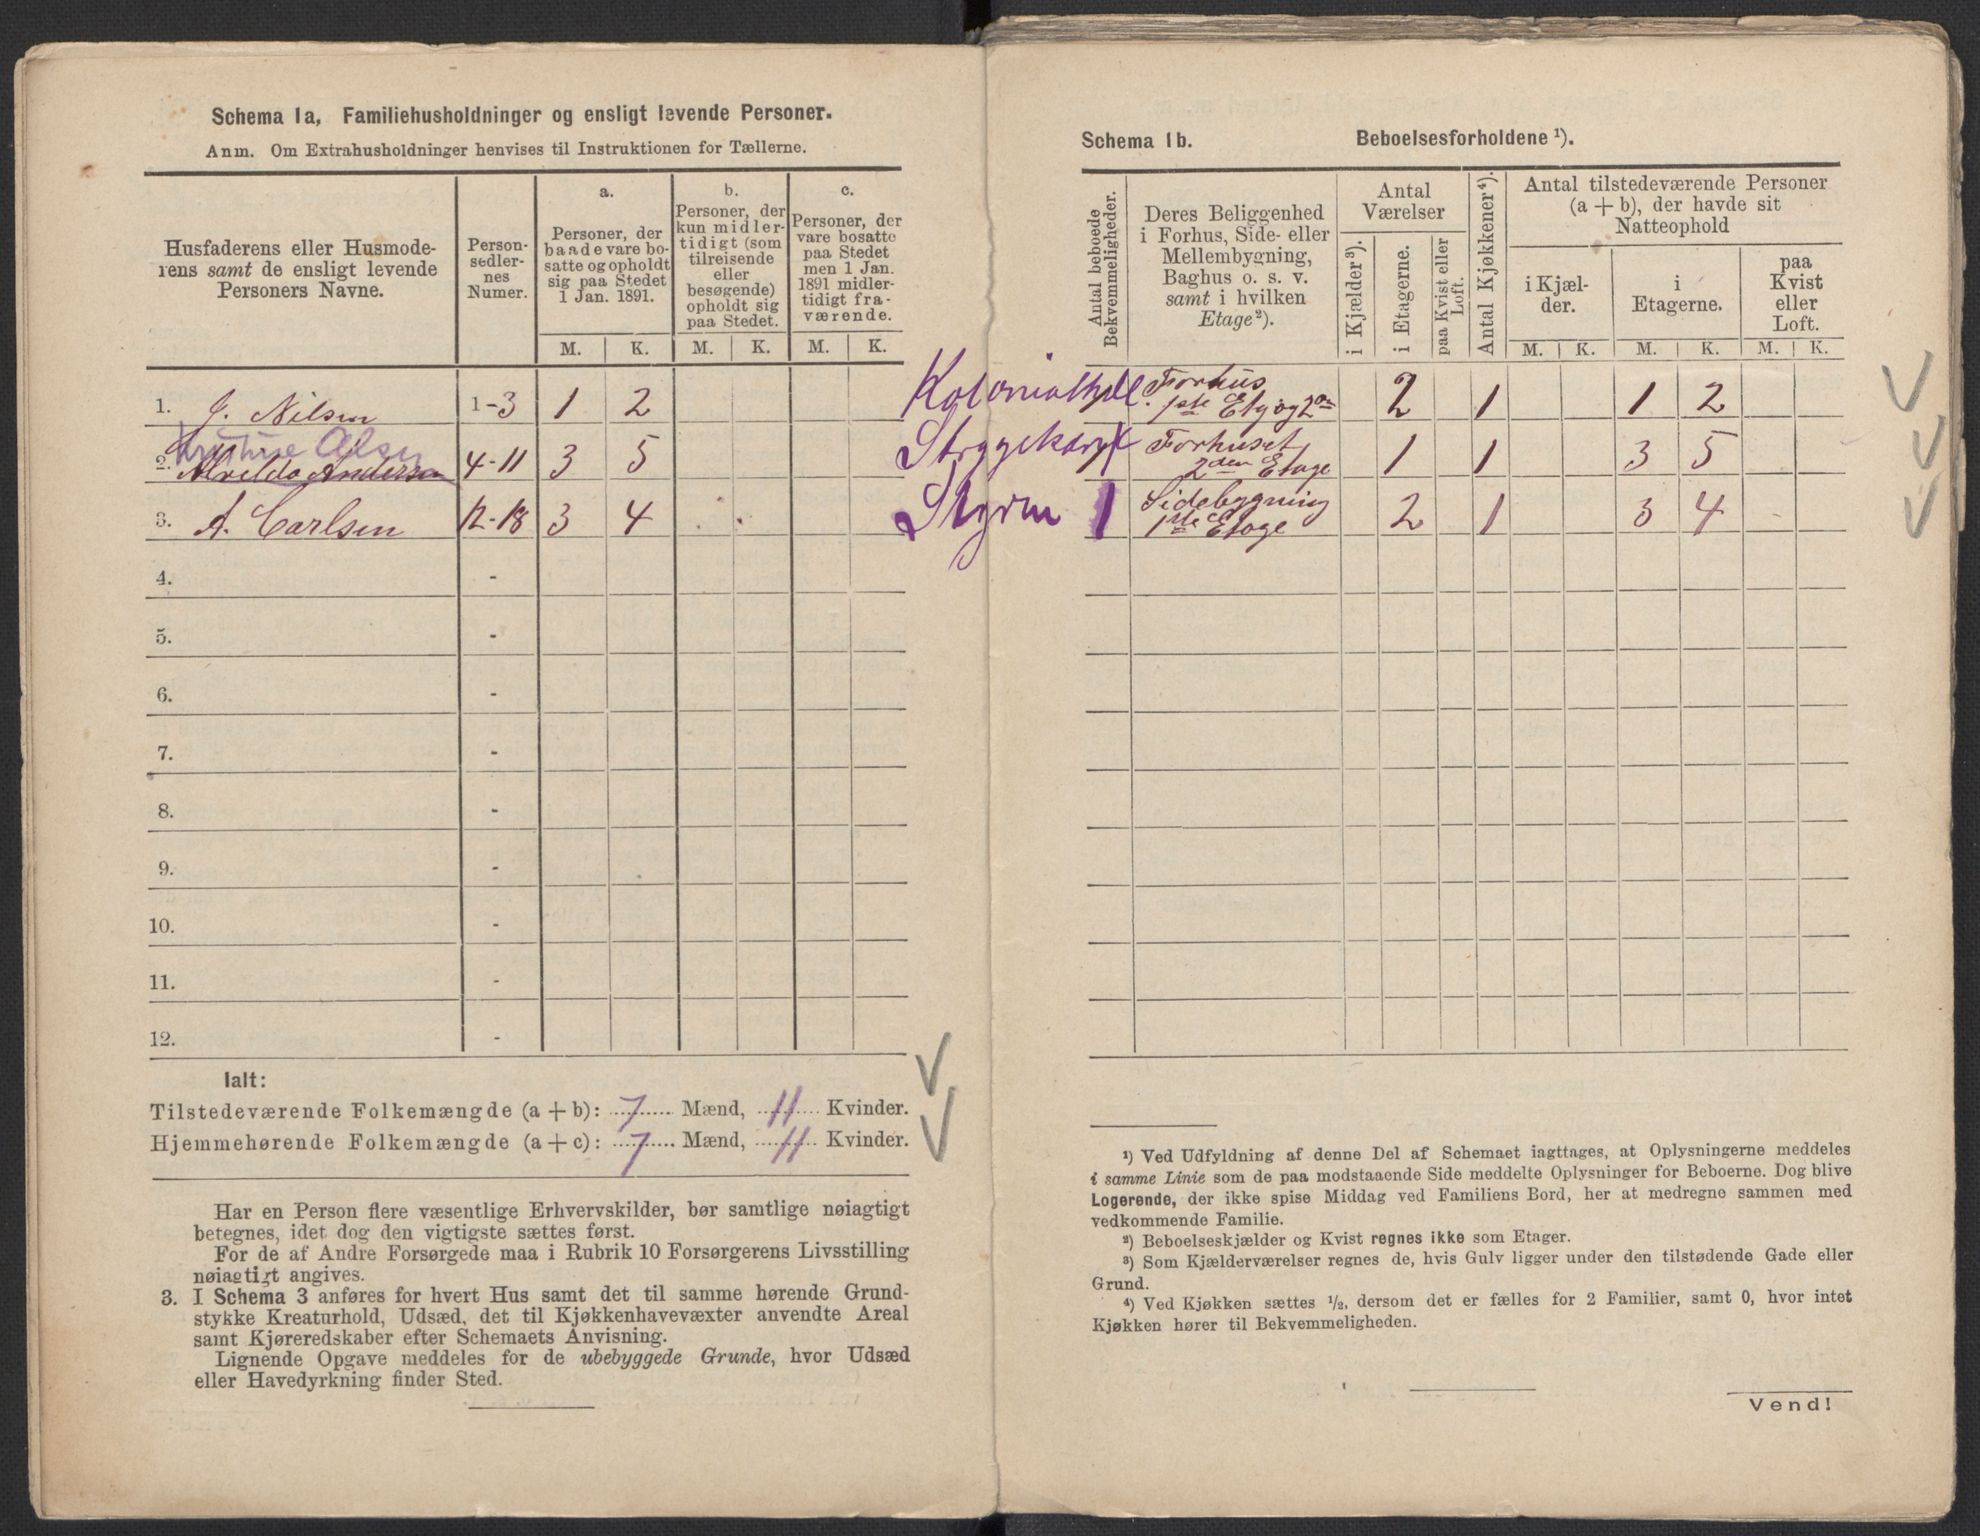 Schema 1a, Familiehusholdninger og ensligt levende Personer.
Anm. Om Extrahusholdninger henvises til Instruktionen for Tællerne.
Husfaderens eller Husmode-
rens samt de ensligt levende
Personers Navne.
Person-
sedler-
nes
Numer.
a.
Personer, der
baade vare bo-
satte og opholdt
sig paa Stedet
1 Jan. 1891.
b.
Personer, der
kun midler-
tidigt (som
tilreisende
eller
besøgende)
opholdt sig
paa Stedet.
c.
Personer, der
vare bosatte
paa Stedet
men 1 Jan.
1891 midler-
tidigt fra-
værende.
M. K. M. K. M. K.
1. J. Nilsen 1-3 1 2
Kristine Olsen
2. Alvilda Andersen 4-11 3 5
3. A. Carlsen 12-18 3 4
4. -
5. -
6. -
7. -
8. -
9. -
10. -
11. -
12. -
Ialt:
Tilstedeværende Folkemængde (a + b): 7 Mænd, 11 Kvinder.
Hjemmehørende Folkemængde (a + c): 7 Mænd, 11 Kvinder.
Har en Person flere væsentlige Erhvervskilder, bør samtlige nøiagtigt
betegnes, idet dog den vigtigste sættes først.
For de af Andre Forsørgede maa i Rubrik 10 Forsørgerens Livsstilling
nøiagtigt angives.
3. I Schema 3 anføres for hvert Hus samt det til samme hørende Grund-
stykke Kreaturhold, Udsæd, det til Kjøkkenhavevæxter anvendte Areal
samt Kjøreredskaber efter Schemaets Anvisning.
Lignende Opgave meddeles for de ubebyggede Grunde, hvor Udsæd
eller Havedyrkning finder Sted.
Schema 1b. Beboelsesforholdene ¹).
Antal beboede
Bekvemmeligheder.
Deres Beliggenhed
i Forhus, Side- eller
Mellembygning,
Baghus o. s. v.
samt i hvilken
Etage²).
Antal
Værelser
i Kjælder³).
i Etagerne.
paa Kvist eller
Loft.
Antal Kjøkkener⁴).
Antal tilstedeværende Personer
(a + b), der havde sit
Natteophold
i Kjæl-
der.
i
Etagerne.
paa
Kvist
eller
Loft.
M. K. M. K. M. K.
Kolonialhdl. Forhus
1ste Etg og 2den 2 1 1 2
Forhuset
2den Etage 1 1 3 5
Styrm 1 Sidebygning
1ste Etage 2 1 3 4
¹) Ved Udfyldning af denne Del af Schemaet iagttages, at Oplysningerne meddeles
i samme Linie som de paa modstaaende Side meddelte Oplysninger for Beboerne. Dog blive
Logerende, der ikke spise Middag ved Familiens Bord, her at medregne sammen med
vedkommende Familie.
²) Beboelseskjælder og Kvist regnes ikke som Etager.
³) Som Kjælderværelser regnes de, hvis Gulv ligger under den tilstødende Gade eller
Grund.
⁴) Ved Kjøkken sættes ½, dersom det er fælles for 2 Familier, samt 0, hvor intet
Kjøkken hører til Bekvemmeligheden.
Vend!